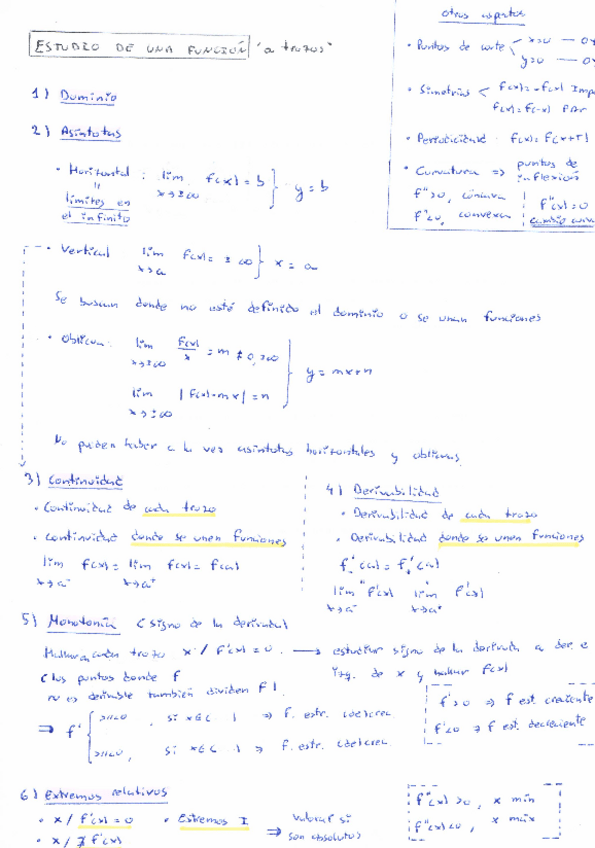 ESTUDIO DE UNA FUNCIÓN "a trozos"
otros aspectos
• Puntos de corte x=0
y=0
• Simetrías f(x)=-f(x) Imp
f(x)=f(-x) PAr
• Periodicidad f(x)=f(x+T)
• Curvatura => puntos de
inflexión
f''>0, cóncava f''(x)=0
f''<0, convexa cambio curva
1) Dominio
2) Asíntotas
• Horizontal : lim f(x)=b } y=b
x→±∞
límites en
el infinito
• Vertical lim f(x)=±∞ } x=a
x→a
Se buscan donde no esté definido el dominio o se unan funciones
• Oblicua lim f(x)/x = m ≠ 0, ±∞
x→±∞
y=mx+n
lim |f(x)-mx|=n
x→±∞
No pueden haber a la vez asíntotas horizontales y oblicuas
3) Continuidad
• Continuidad de cada trozo
• Continuidad donde se unen funciones
lim f(x)=lim f(x)=f(a)
x→a⁻ x→a⁺
4) Derivabilidad
• Derivabilidad de cada trozo
• Derivabilidad donde se unen funciones
f'₋(a)=f'₊(a)
lim f'(x) lim f'(x)
x→a⁻ x→a⁺
5) Monotonía (signo de la derivada)
cada trozo x / f'(x)=0. → estudiar signo de la derivada a der. e
izq. de x y hallar f(x)
(los puntos donde f
no es derivable también dividen f).
=> f' , si x∈( ) => f. estr. (de)crec
, si x∈( ) => f. estr. (de)crec
f'>0 => f est. creciente
f'<0 => f est. decreciente
6) Extremos relativos
• x / f'(x)=0 • Extremos I => Valorar si
son absolutos
• x / ∄ f'(x)
f''(x)>0, x mín
f''(x)<0, x máx